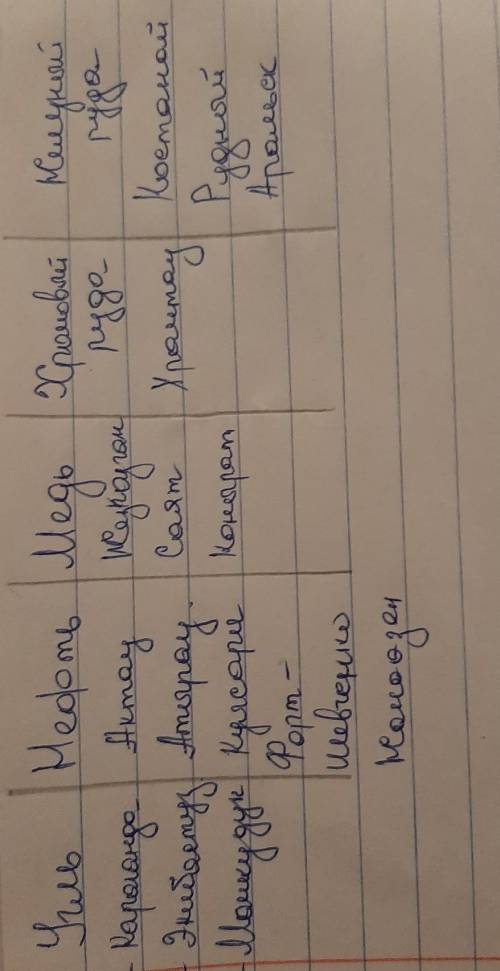 Уголь Нефть Медь Хромовый руда Железный руда
Караганда Актау Жезказган Хромтау Костанай
Экибастуз Атырау Саят Рудный
Майкудук Кулсары Конырат Аральск
Форт-
Шевченко
Жанаозен